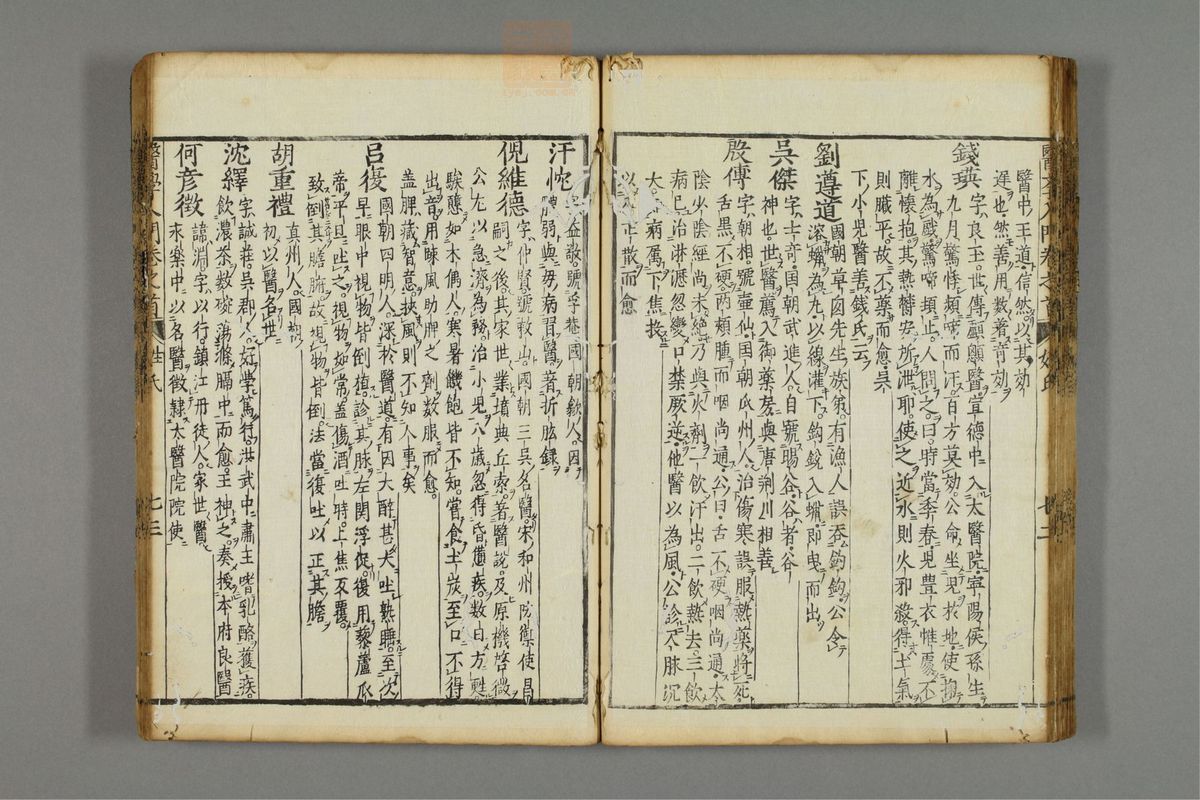 醫中王道信然以其効
遲也然善用数者竒効
錢瑛字良玉世傳顱顖醫宣德中入太醫院寧陽侯孫生
九月驚悸頻啼而汗百方莫効公命坐児於地使掬
水為戲驚啼頓止人問之曰時當季春児豊衣帷處不
離懷抱其熱欝安所泄耶使之近水則火邪發得土氣
則臓平故不藥而愈吳
下小児醫善錢氏云
劉遵道國朝草囱先生族弟有漁人誤吞釣鈎公令
溶蠟為丸以線灌下鈎銳入蠟即曳而出
吳傑字士竒国朝武進人自號暘谷谷者谷
神也世醫薦入御藥房與唐荆川相善
殷傳字朝相號壷仙国朝瓜州人治傷寒誤服熱藥將死
舌黑不硬两頰腫而咽尚通公曰舌不硬咽尚通太
陰少陰經尚未絶乃與火劑一飲汗出二飲熱去三飲
病已治淋瀝忽變口禁厥逆他醫以為風公診大脉沉
大病属下焦投
以正散而愈
汪忱字益敬號字菴國朝歙人因
脾弱與毋病習醫著折肱録
倪維德字仲賢號敕山國朝三吳名醫宋和州防禦使昌
嗣之後其家世業墳典丘索著醫說及原機啓微
公尢以急濟為務治小児八歲忽得昏憒疾数日方甦
騃戆如木偶人寒暑饑飽皆不知嘗食土炭至口不得
出音用䟽風助脾之劑数服而愈
盖脾藏智意挾風則不知人事矣
吕復國朝四明人深於醫道有因大醉甚犬吐熟睡至次
早眼中視物皆倒植診其脉左関浮促復用藜蘆瓜
帝平旦吐之視物如常盖傷酒吐時上焦反覆
致倒其膽腑故視物皆倒法當復吐以正其膽
胡重禮真州人國初
初以醫名世
沈繹字誠菴吳郡人好學篤行洪武中肅王嗜乳酪獲疾
飲濃茶数碗蕩滌膈中而愈王神之奏授本府良醫
何彦徵諱淵字以行鎮江丹徒人家世醫
来樂中以名醫徵隷太醫院院使
醫學入門卷之首 姓氏 七三